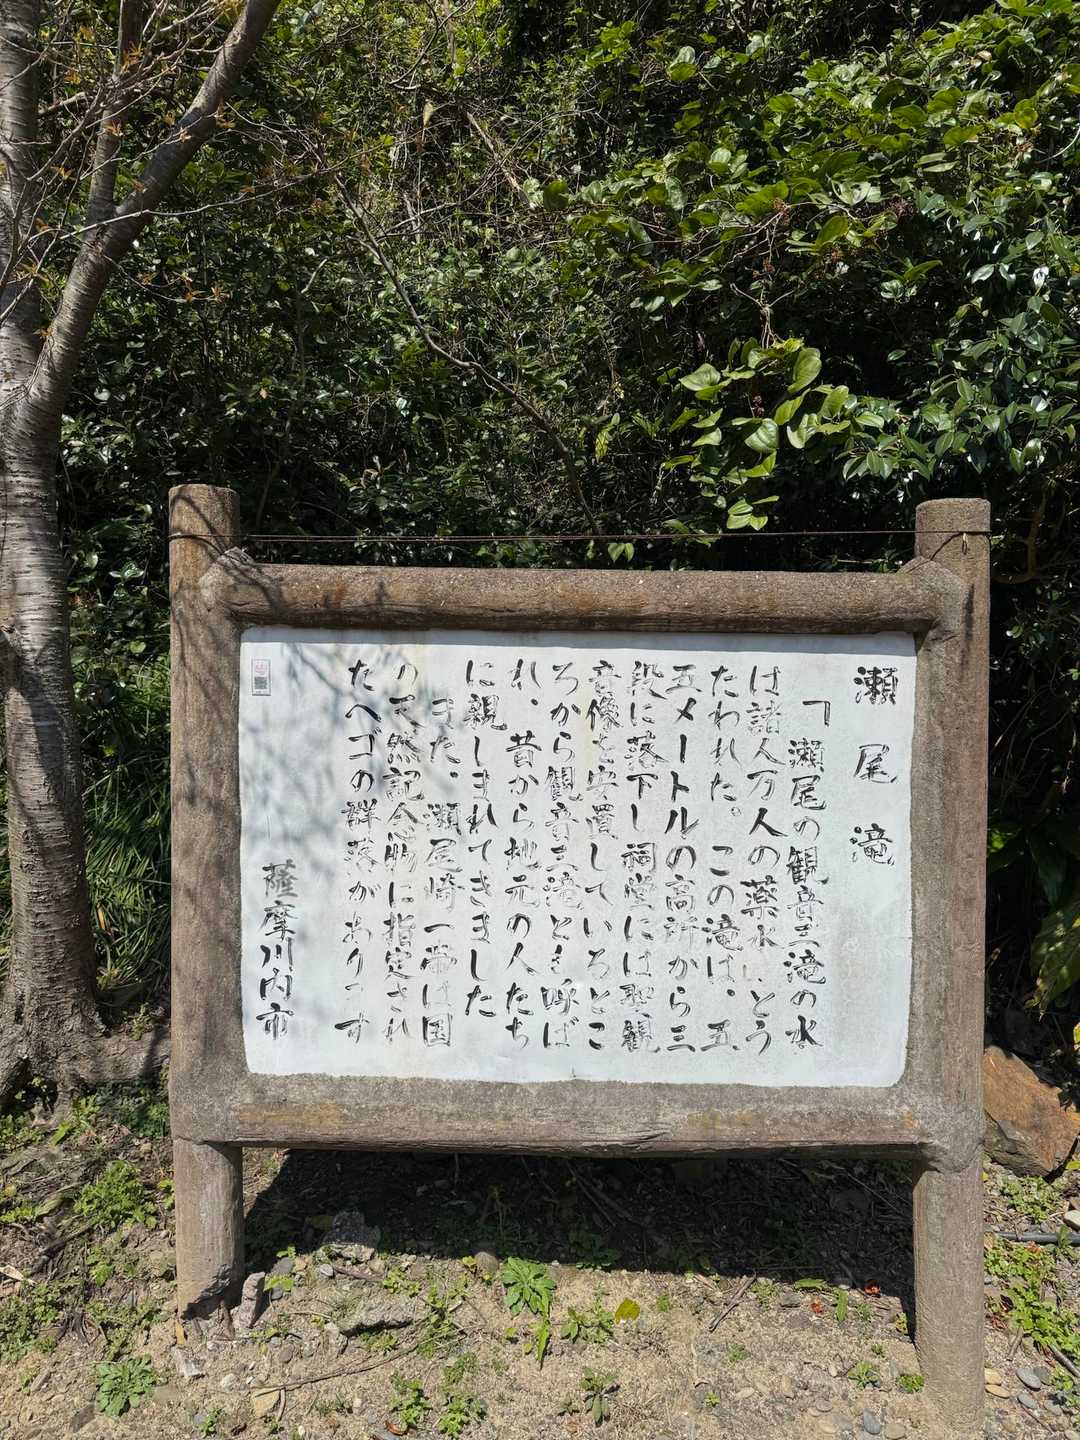 瀬尾滝
「瀬尾の観音三滝の水
は諸人万人の薬水とう
たわれた。この滝は、五
五メートルの高所から三
段に落下し祠堂には聖観
音像を安置しているとこ
ろから観音三滝とも呼ば
れ、昔から地元の人たち
に親しまれてきました
また、瀬尾崎一帯は国
の天然記念物に指定され
たヘゴの群落があります
薩摩川内市